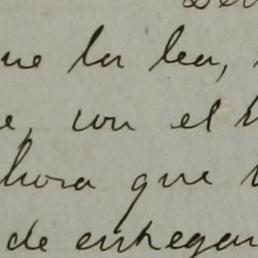 que la lea,
con el
ahora que
de entregar